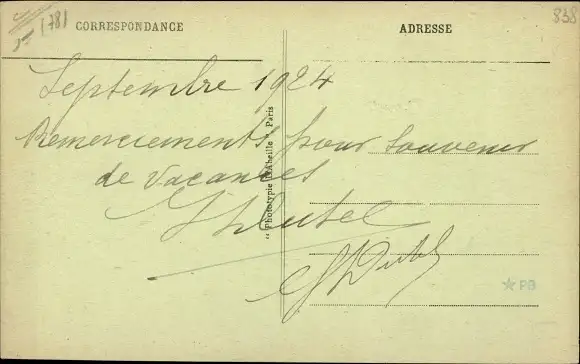 1781
838
CORRESPONDANCE
ADRESSE
Septembre 1924
Remerciements pour souvenir
de vacances
"Phototypie d'Abeille" Paris
★ PB